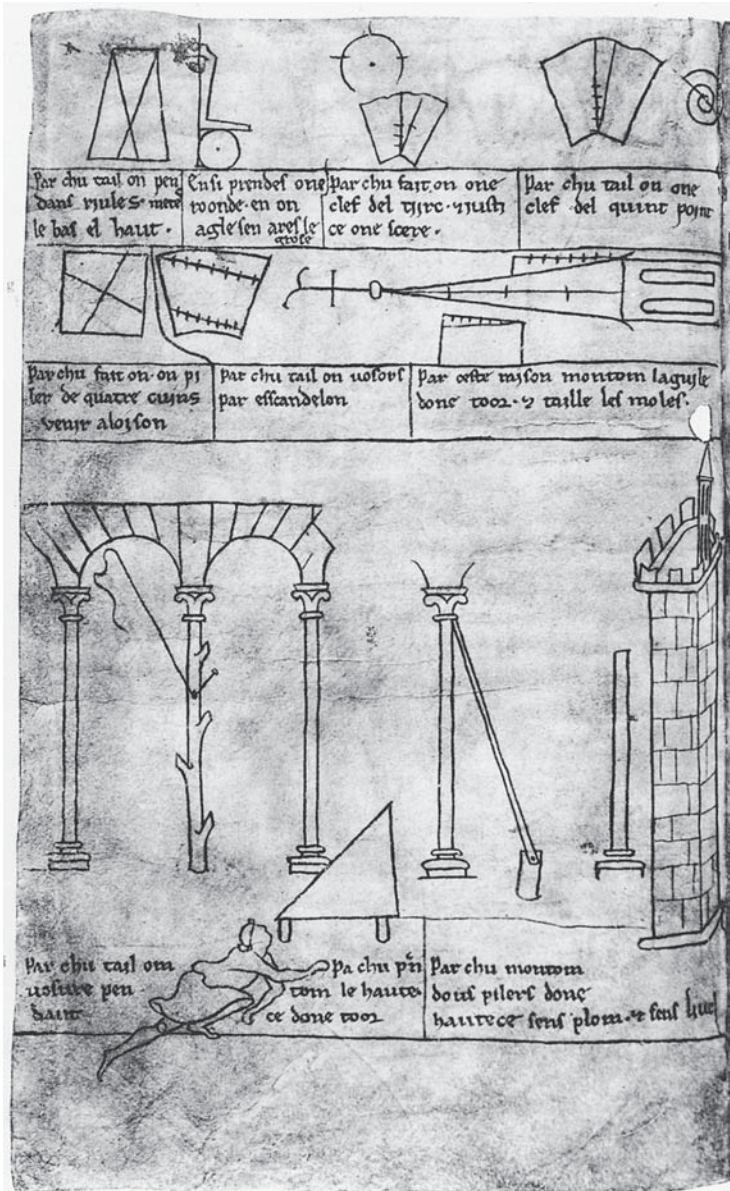 Par chu tail on pen
dans riules · mete
le bas el haut ·
Ensi prendes one
roonde · en on
agle sen ares le
grose
Par chu fait on one
clef del tirc · ⁊ justi
ce one scere ·
Par chu tail on one
clef del quint point
Par chu fait on · on pi
ler de quatre cuins
venir aloison
Par chu tail on vosors
par esscandelon
Par ceste raison montom laguile
done toor · ⁊ taille les moles ·
Par chu tail om
vosure pen
dant
Pa chu prñ
tom le haute·
ce done toor
Par chu montom
dous pilers done
hautece sens plom · ⁊ sens livel